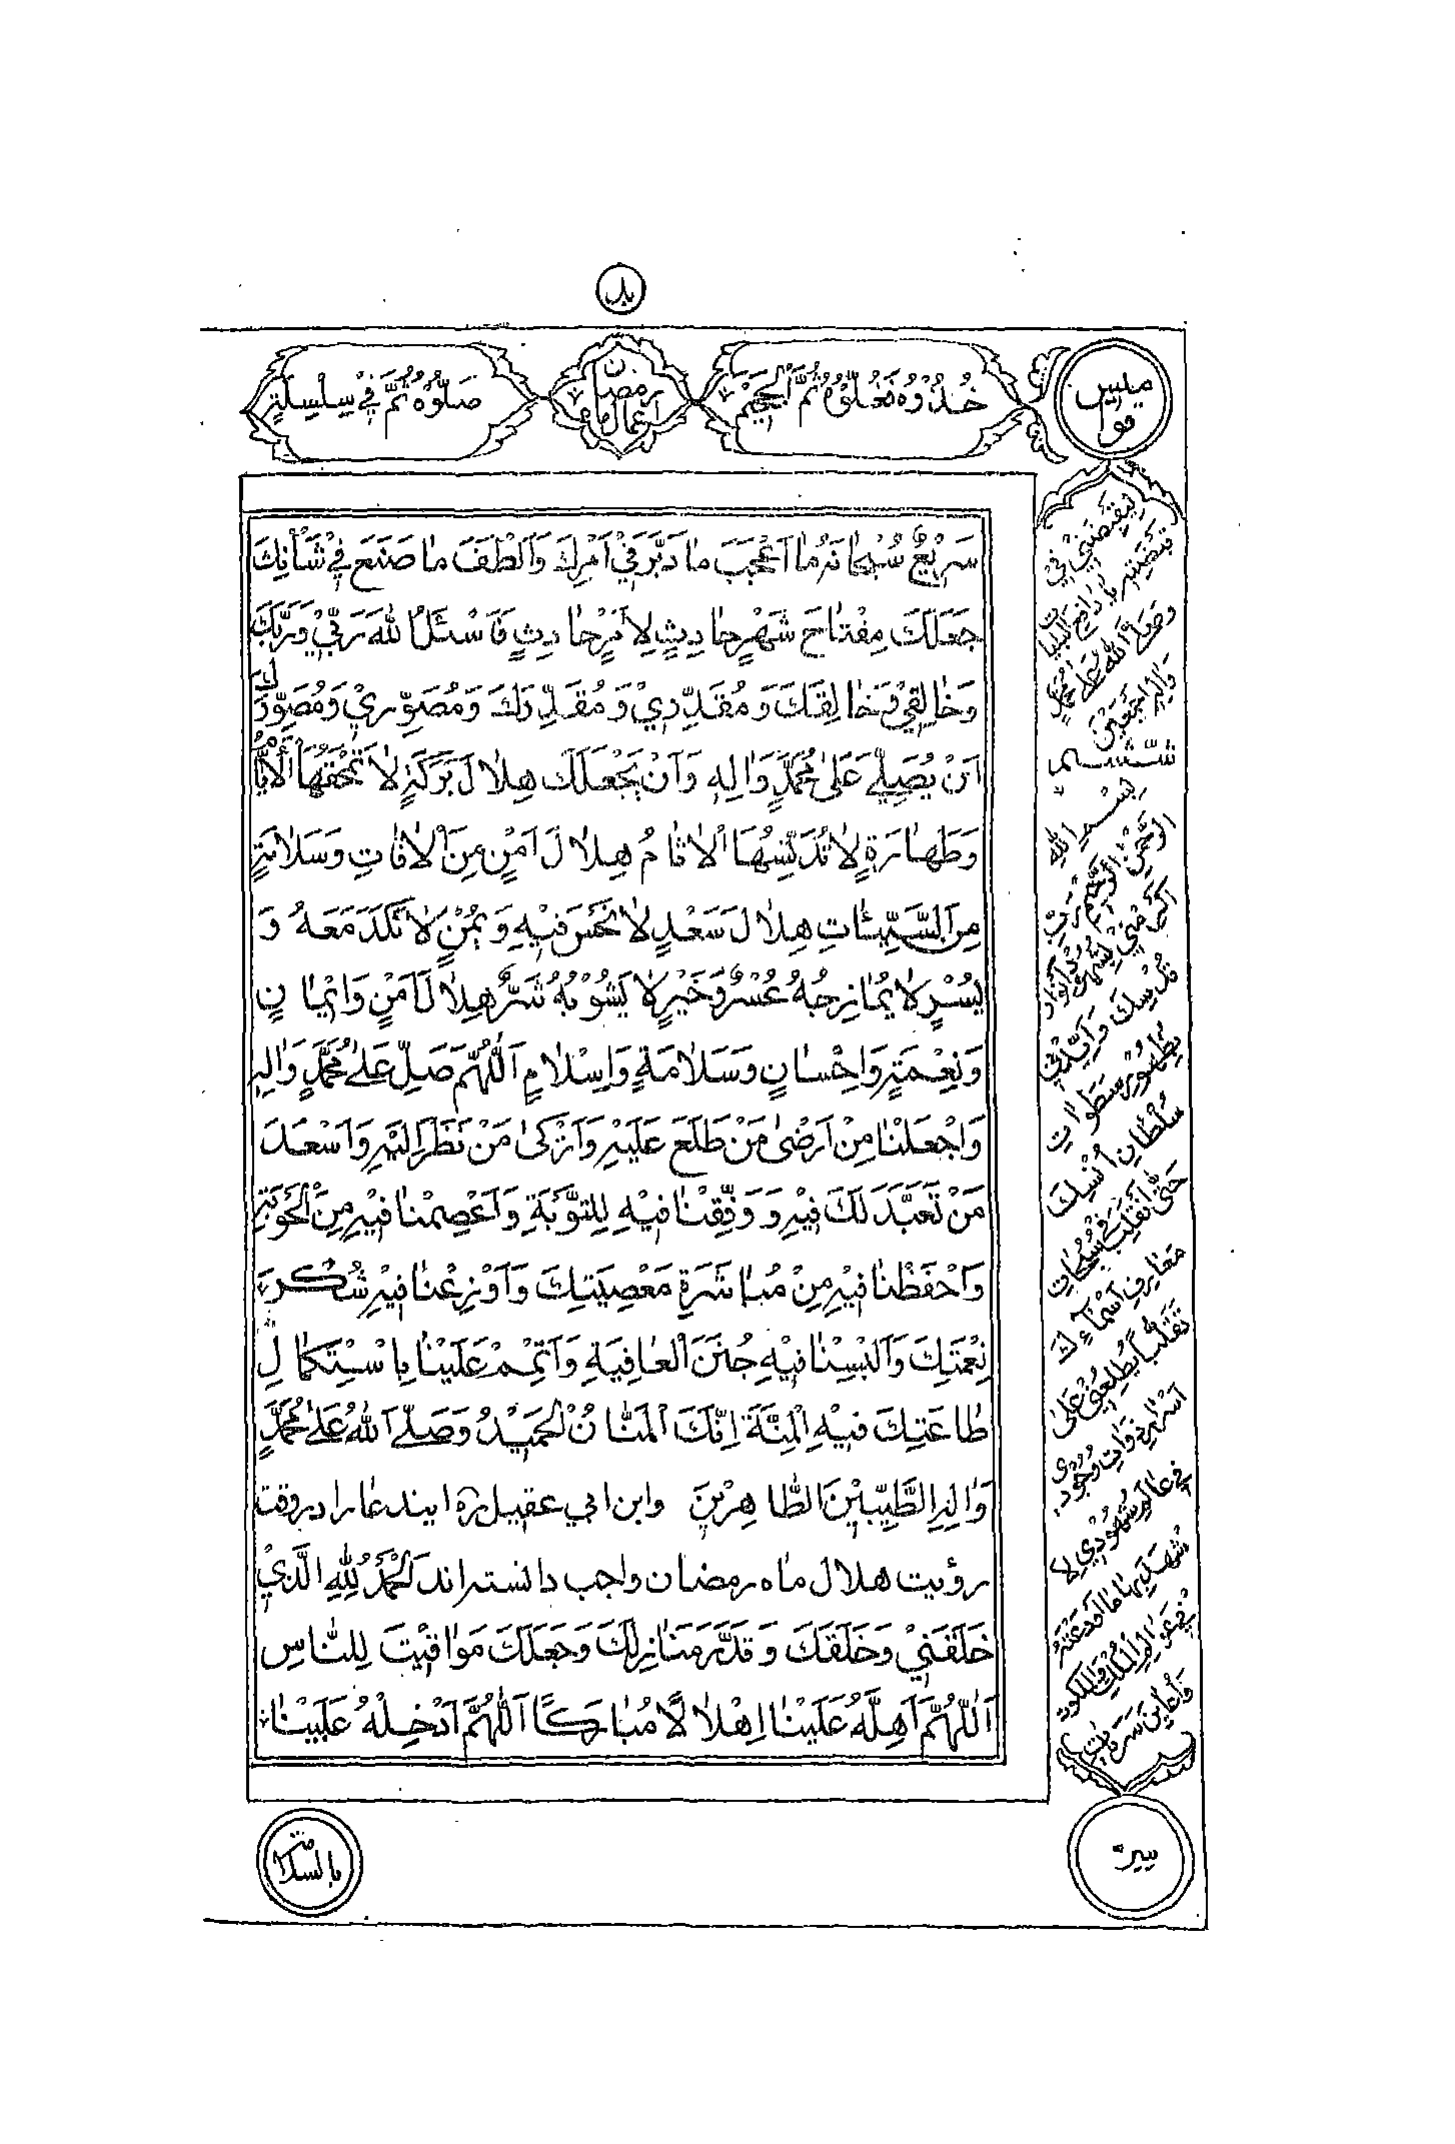 خُذُوْهُ فَغُلُّوْهُ ثُمَّ الْجَحِيْمَ
اعمال ماه رمضان
صَلُّوْهُ ثُمَّ فِيْ سِلْسِلَةٍ
سَرِيْعٌ سُبْحَانَهُ مَا اَعْجَبَ مَا دَبَّرَ فِيْ اَمْرِكَ وَاَلْطَفَ مَا صَنَعَ فِيْ شَأْنِكَ
جَعَلَكَ مِفْتَاحَ شَهْرٍ حَادِثٍ لِاَمْرٍ حَادِثٍ فَاَسْئَلُ اللهَ رَبِّيْ وَرَبَّكَ
وَخَالِقِيْ وَخَالِقَكَ وَمُقَدِّرِيْ وَمُقَدِّرَكَ وَمُصَوِّرِيْ وَمُصَوِّرَكَ
اَنْ يُصَلِّيَ عَلَى مُحَمَّدٍ وَاٰلِهِ وَاَنْ يَجْعَلَكَ هِلَالَ بَرَكَةٍ لَا تَمْحَقُهَا الْاَيَّامُ
وَطَهَارَةٍ لَا تُدَنِّسُهَا الْاٰثَامُ هِلَالَ اَمْنٍ مِنَ الْاٰفَاتِ وَسَلَامَةٍ
مِنَ السَّيِّئَاتِ هِلَالَ سَعْدٍ لَا نَحْسَ فِيْهِ وَيُمْنٍ لَا نَكَدَ مَعَهُ وَ
يُسْرٍ لَا يُمَازِجُهُ عُسْرٌ وَخَيْرٍ لَا يَشُوْبُهُ شَرٌّ هِلَالَ اَمْنٍ وَاِيْمَانٍ
وَنِعْمَةٍ وَاِحْسَانٍ وَسَلَامَةٍ وَاِسْلَامٍ اَللّٰهُمَّ صَلِّ عَلَى مُحَمَّدٍ وَاٰلِهِ
وَاجْعَلْنَا مِنْ اَرْضٰى مَنْ طَلَعَ عَلَيْهِ وَاَزْكٰى مَنْ نَظَرَ اِلَيْهِ وَاَسْعَدَ
مَنْ تَعَبَّدَ لَكَ فِيْهِ وَ وَفِّقْنَا فِيْهِ لِلتَّوْبَةِ وَاعْصِمْنَا فِيْهِ مِنَ الْحَوْبَةِ
وَاحْفَظْنَا فِيْهِ مِنْ مُبَاشَرَةِ مَعْصِيَتِكَ وَاَوْزِعْنَا فِيْهِ شُكْرَ
نِعْمَتِكَ وَاَلْبِسْنَا فِيْهِ جُنَنَ الْعَافِيَةِ وَاَتْمِمْ عَلَيْنَا بِاسْتِكْمَالِ
طَاعَتِكَ فِيْهِ الْمِنَّةَ اِنَّكَ الْمَنَّانُ الْحَمِيْدُ وَصَلَّى اللهُ عَلَى مُحَمَّدٍ
وَاٰلِهِ الطَّيِّبِيْنَ الطَّاهِرِيْنَ وابن ابي عقيل ره ايندعا را در وقت
رؤيت هلال ماه رمضان واجب دانسته اند اَلْحَمْدُ لِلّٰهِ الَّذِيْ
خَلَقَنِيْ وَخَلَقَكَ وَقَدَّرَ مَنَازِلَكَ وَجَعَلَكَ مَوَاقِيْتَ لِلنَّاسِ
اَللّٰهُمَّ اَهِلَّهُ عَلَيْنَا اِهْلَالًا مُبَارَكًا اَللّٰهُمَّ اَدْخِلْهُ عَلَيْنَا
وَصَلَّى اللهُ عَلَى مُحَمَّدٍ
وَاٰلِهِ اَجْمَعِيْنَ
بِسْمِ اللهِ
الرَّحْمٰنِ الرَّحِيْمِ رَبِّ
قُدْسِكَ وَاَيِّدْنِيْ
بِظُهُوْرِ سَطَوَاتِ
سُلْطَانِ اُنْسِكَ
حَتّٰى اَتَقَلَّبَ فِيْ سُبُحَاتِ
مَعَارِفِ اَسْمَآئِكَ
تَقَلُّبًا يُطْلِعُنِيْ عَلٰى
اَسْرَارِ ذَرَّاتِ وُجُوْدِيْ
فِيْ عَالَمِ شُهُوْدِيْ لِا
شَهَدَ بِهَا مَا اَوْدَعْتَهُ
فِيْ عَوَالِمِ الْمُلْكِ وَالْمَلَكُوْتِ
بالسلامة